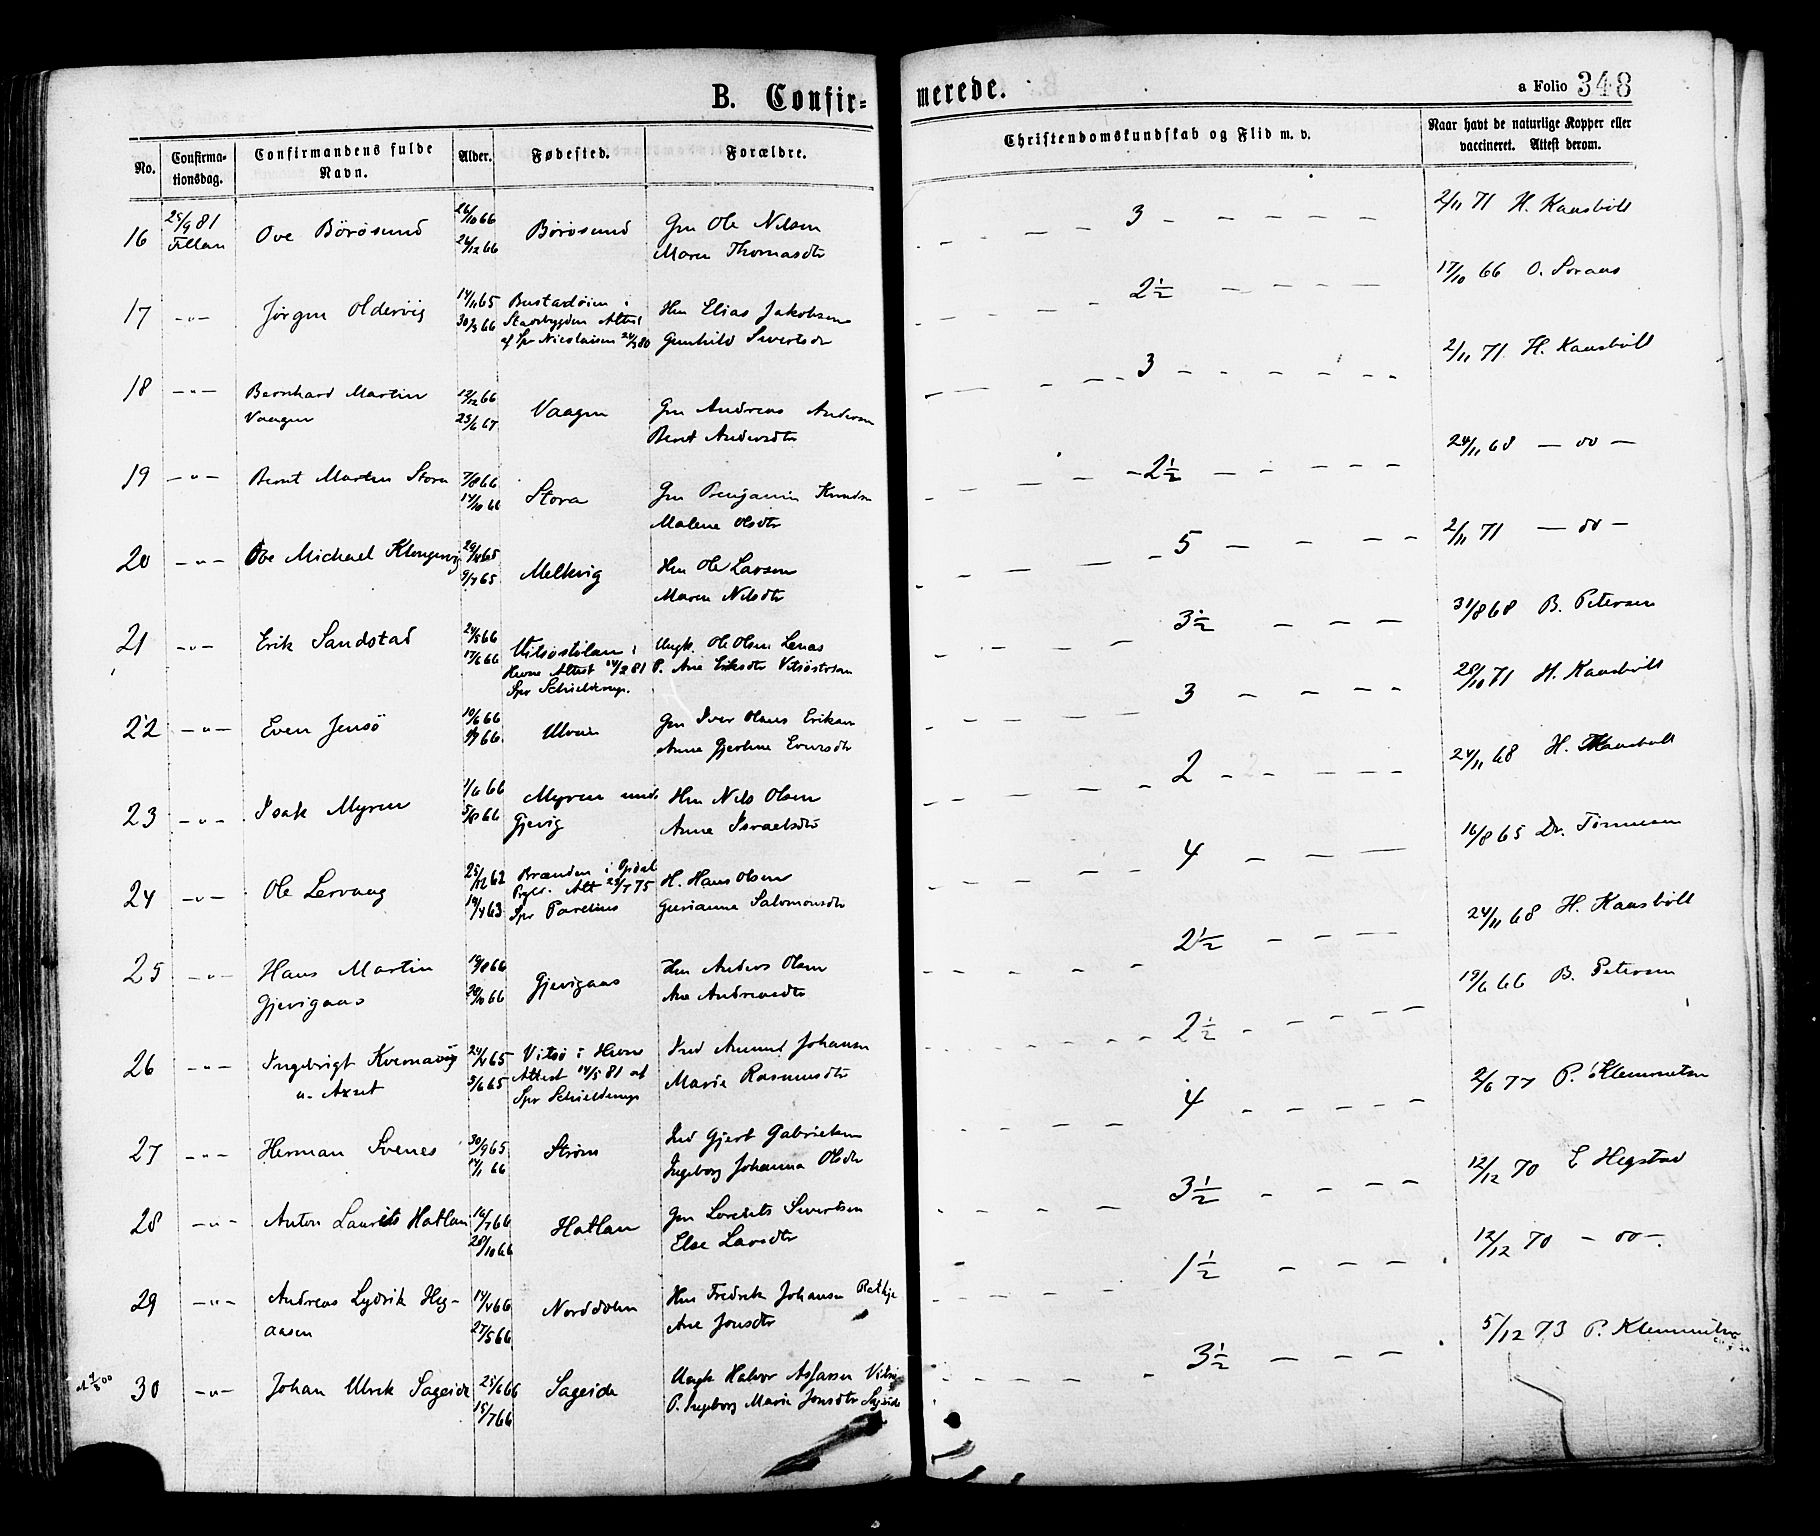 B. Confir=
merede.
a Folio 348
No.
Confirma-
tionsdag.
Confirmandens fulde
Navn.
Alder.
Fødested.
Forældre.
Christendomskundskab og Flid m. v.
Naar havt de naturlige Kopper eller
vaccineret. Attest derom.
16 25/9 81 Ove Börösund 26/10 66 Börösund Gm Ole Nilsen 3 2/11 71 H. Kaasböll
Fillan 26/12 66 Maren Thomasdtr
17 -"- Jörgen Oldervig 14/11 65 Bustadöien i Hm Elias Jakobsen 2½ 17/10 66
30/3 66 Stadsbygden Attest Gunhild Sivertsdr
af Spr Nicolaisen 24/3 80
18 -"- Bernhard Martin 13/12 66 Vaagen Gm Andreas Andersen 3 2/11 71 H. Kaasböll
Vaagen 23/6 67 Beret Andersdtr
19 -"- Bernt Martin Stora 7/8 66 Stora Gm Benjamin Knudsn 2½ 24/11 68 - oo -
14/10 66 Malene Olsdtr
20 -"- Ove Michael Klengervig 65 Melkvig Hm Ole Larsen 5 2/11 71 - oo -
9/7 65 Maren Nilsdtr
21 -"- Erik Sandstad 24/5 66 Vitsöstölan i Ungk. Ole Olsen Lenas 3½ 31/8 68 B. Petersen
17/6 66 Hevne Attest 14/2 81 P. Ane Eriksdtr Vitsöstölan
Spr Schielderup.
22 -"- Even Jensö 10/6 66 Ulvan Gm Iver Olaus Eriksen 3 28/10 71 H. Kaasböll
66 Anne Gjertine Evensdtr
23 -"- Isak Myren 1/6 66 Myren und. Hm Nils Olsen 2 24/11 68 H. Kaasböll
5/8 66 Gjevig Anne Israelsdtr
24 -"- Ole Lervaag 25/12 62 Brænden i Opdal H. Hans Olsen 4 16/8 65 Dr. Tönnesen
19/4 63 Prgld. Att 22/7 75 Gurianna Salomonsdtr
Spr Parelius
25 -"- Hans Martin 19/8 66 Gjevigaas Hm Anders Olsen 2½ 24/11 68 H. Kaasböll
Gjevigaas 66 Ane Andreasdtr
26 -"- Ingebrigt Kvernavig 24/4 65 Vitsö i Hevne Ind Amund Johansen 2½ 19/6 66 B. Petersen
u. Axset 5/6 65 Attest 14/5 81 af Marie Rasmusdtr
Spr Schielderup
27 -"- Herman Svenes 30/9 65 Ström Ind Gjert Gabrielsen 4 2/6 77 P. Klemmetsen
14/1 66 Ingeborg Johanna Olsdtr
28 -"- Anton Laurits Hatlan 16/7 66 Hatlan Gm Lorents Sivertsen 3½ 12/12 70 E Hegstad
28/10 66 Else Larsdtr
29 -"- Andreas Lydrik Heg- 14/4 66 Norddolm Hm Fredrik Johansen 1½ 12/12 70 - oo -
aasen 27/5 66 Ane Jonsdtr
30 -"- Johan Ulrik Sageide 25/6 66 Sageide Ungk Halvor Assersen 3½ 5/12 73 P. Klemmetsen
15/7 66 P. Ingeborg Marie Jonsdtr Sageide